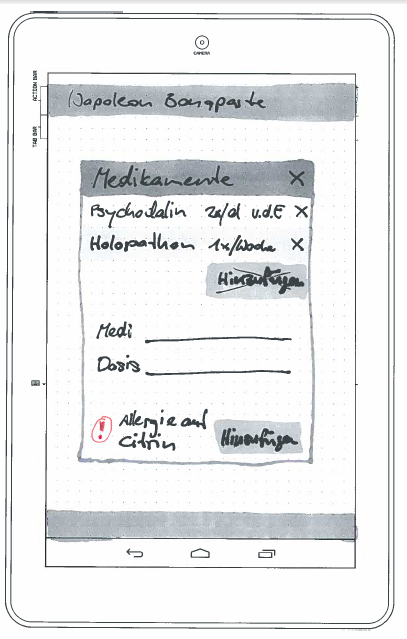 CAMERA
ACTION BAR
TAB BAR
Napoleon Bonaparte
Medikamente X
Psychodalin 2x/d u.d.E X
Holopathon 1x/Woche X
Hinzufügen
Medi
Dosis
! Allergie auf
Citrin
Hinzufügen